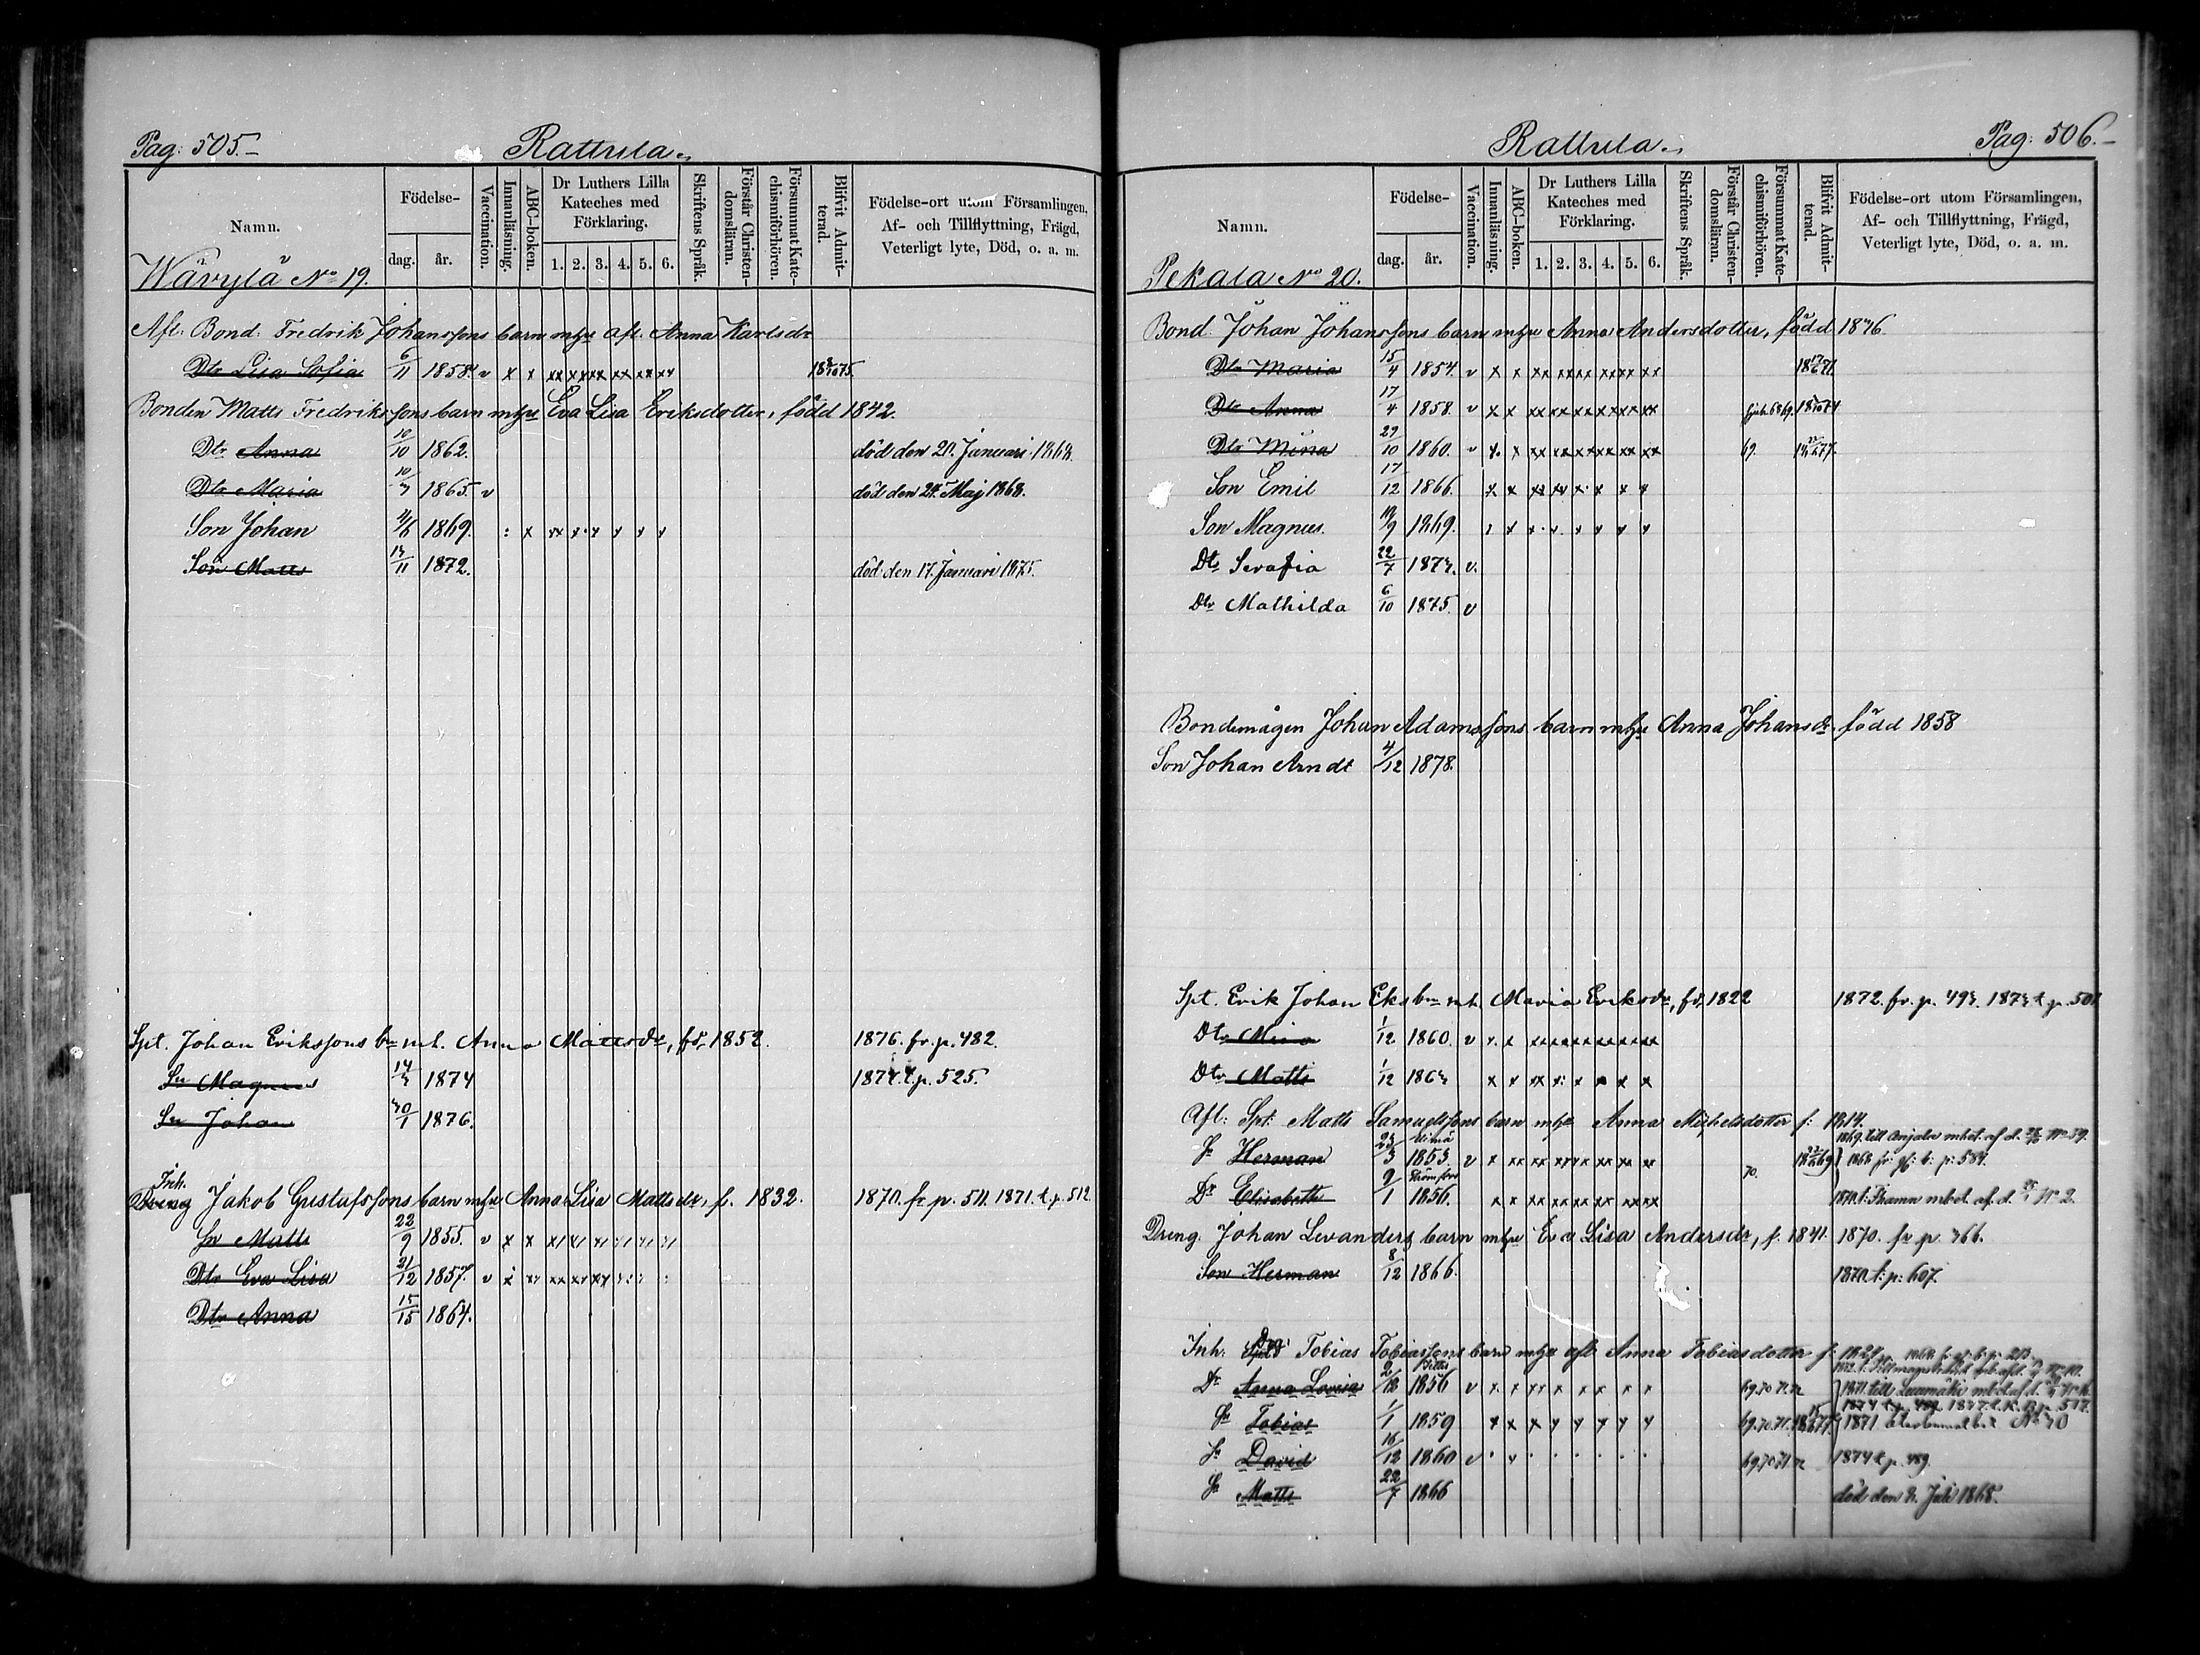 Pag: 505.
Rattula.
Namn.
Födelse-
dag. år.
Vaccination.
Innanläsning.
ABC-boken.
Dr Luthers Lilla Kateches med Förklaring.
1. 2. 3. 4. 5. 6.
Skriftens Språk.
Förstår Christen-domsläran.
Försummat Kate-chismiförhören.
Blifvit Admit-terad.
Födelse-ort utom Församlingen,
Af- och Tillflyttning, Frägd,
Veterligt lyte, Död, o. a. m.
Wävylä No 19.
Afl. Bond. Fredrik Johanssons barn m/hu afl. Anna Karlsdr
Dtr Lisa Sofia 6/11 1858. v x x xx xx xx xx xx xx
Bonden Matts Fredrikssons barn m/hu Eva Lisa Eriksdotter, född 1842.
Dtr Anna 10/10 1862. död den 20. Januari 1868.
Dtr Maria 10/3 1865. v död den 24. Maj 1868.
Son Johan 4/6 1869. : x xx x x x x x
Son Matts 13/11 1872. död den 17. Januari 1875.
Spt. Johan Erikssons bn m h. Anna Mattsdr, fd. 1852. 1876. fr. p. 482.
Sn Magnus 14/3 1874 t. p. 525.
Sn Johan 30/1 1876.
Inh.
Dreng Jakob Gustafssons barn m/hu Anna Lisa Mattsdr, f. 1832. 1870. fr p. 511. 1871. t. p. 512
Sn Matts 22/9 1855. v x x
Dtr Eva Lisa 21/12 1857. v
Dtr Anna 15/15 1864.
Pag: 506.
Rattula.
Namn.
Födelse-
dag. år.
Vaccination.
Innanläsning.
ABC-boken.
Dr Luthers Lilla Kateches med Förklaring.
1. 2. 3. 4. 5. 6.
Skriftens Språk.
Förstår Christen-domsläran.
Försummat Kate-chismiförhören.
Blifvit Admit-terad.
Födelse-ort utom Församlingen,
Af- och Tillflyttning, Frägd,
Veterligt lyte, Död, o. a. m.
Pekala No 20.
Bond. Johan Johanssons barn m/hu Anna Andersdotter, född 1836.
Dtr Maria 15/4 1854. v x x xx xx xx xx xx xx
Dtr Anna 17/4 1858. v x x xx xx xx xx xx xx
Dtr Mina 29/10 1860. v x x xx xx xx xx xx xx 69.
Son Emil 17/12 1866. x x xx xx x x x x
Son Magnus. 19/9 1869.
Dtr Serafia 22/7 1873. v.
Dtr Mathilda 6/10 1875. v
Bondemågen Johan Adamssons barn m/hu Anna Johansdr född 1858
Son Johan Arndt 4/12 1878.
Spt. Erik Johan Eks bn m h. Maria Eriksdr, fd. 1822 1872. fr. p. 493. 1873 t. p. 501.
Dtr Mina 1/12 1860. v x x
Dtr Matts 1/12 1863
Afl: Spt: Matts Samuelssons barn m/hu Anna Michelsdotter f: 1814.
Sn Herman 23/3 1853. v 70. 1869. till Anjala
Dr Elisabeth 9/1 1856.
Dreng. Johan Levanders barn m/hu Eva Lisa Andersdr, f. 1841. 1870. fr p. 366.
Son Herman 8/12 1866. 1870. t: p: 607.
Inh. Tobias Tobiassons barn m/hu afl. Anna Tobiasdotter f. 1827.
Dr Anna Lovisa 1856 v 69. 70 71. 72
Sn Tobias 1/1 1859 69. 70. 71.
Sn David 16/12 1860 v 69. 70 71. 72 1874 t. p. 489.
Sn Matts 22/7 1866 död den 8. Juli 1868.